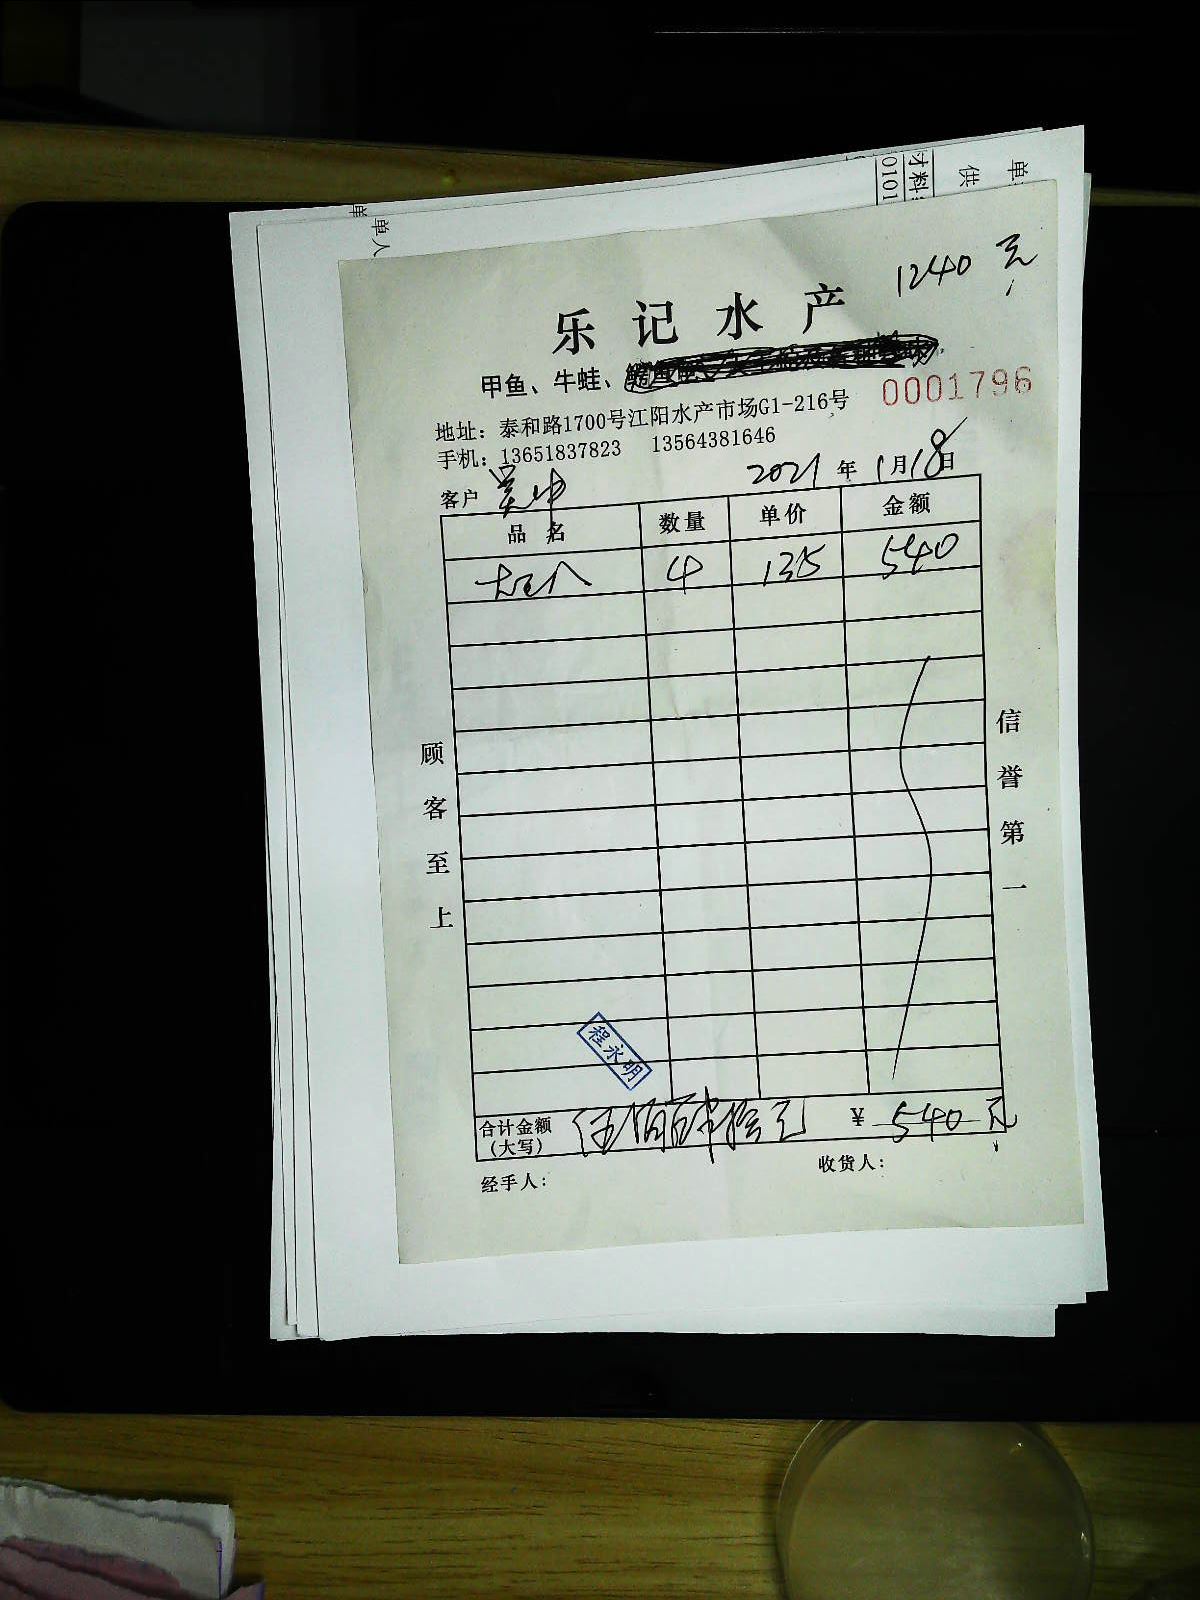 单
供
材料
0101
单人
单
1240元
乐记水产
甲鱼、牛蛙、
0001796
地址：泰和路1700号江阳水产市场G1-216号
手机：13651837823 13564381646
客户 2021年1月18日
品名 数量 单价 金额
大王八 4 135 540
顾客至上
信誉第一
程永明
合计金额(大写) 伍佰肆拾元 ¥540元
经手人： 收货人：